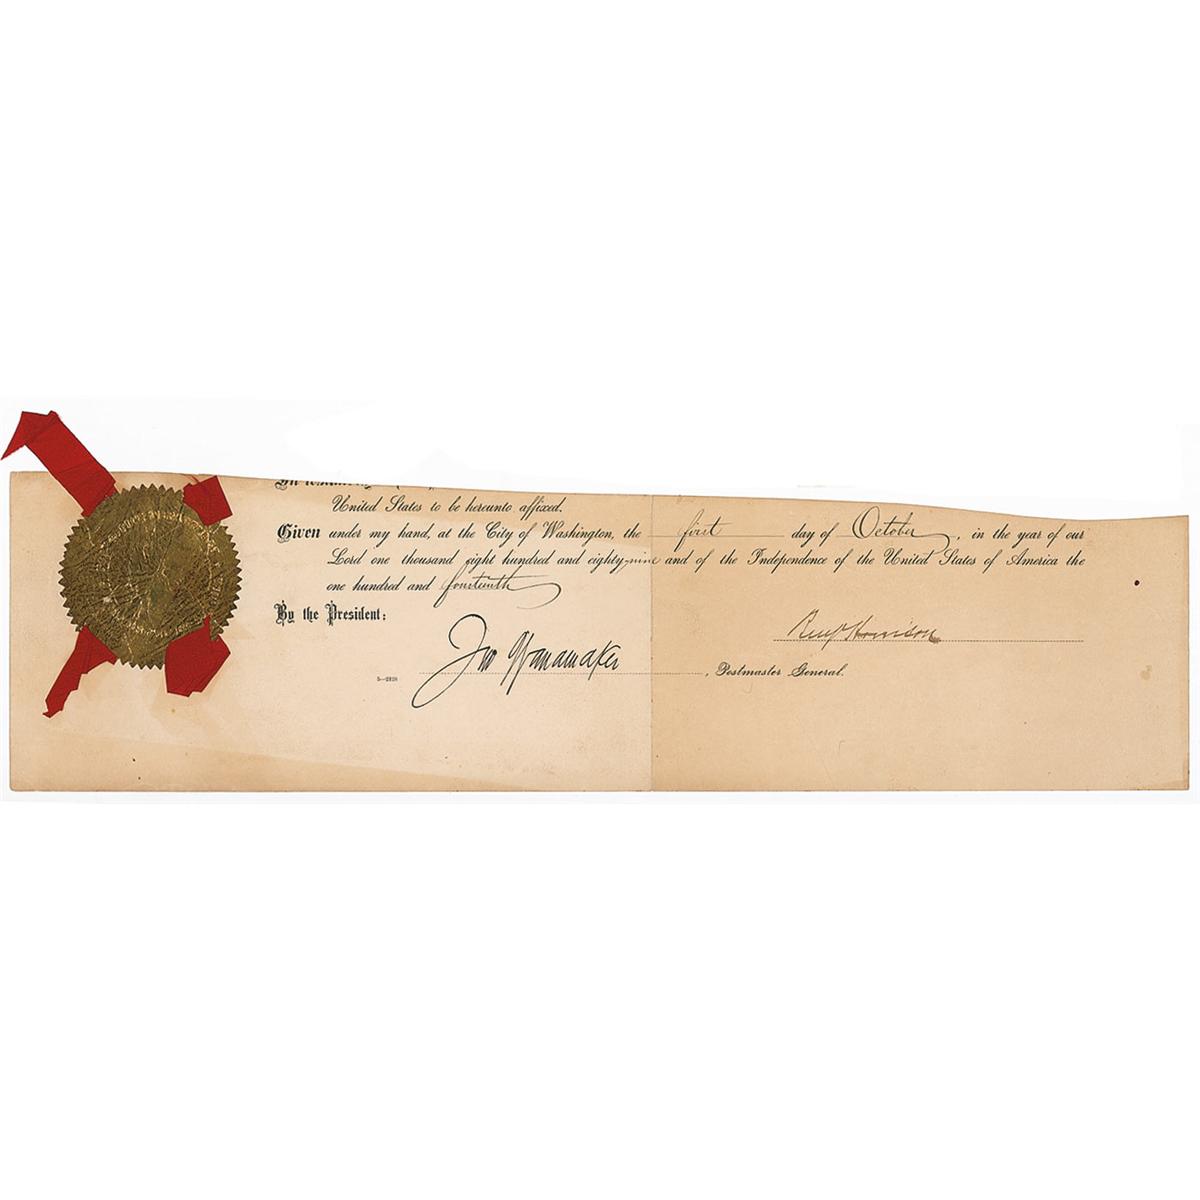 In testimony
United States to be hereunto affixed.
Given under my hand, at the City of Washington, the first day of October, in the year of our
Lord one thousand eight hundred and eighty-nine and of the Independence of the United States of America the
one hundred and fourteenth
By the President:
Benj Harrison
Jno Wanamaker, Postmaster General.
5—2128